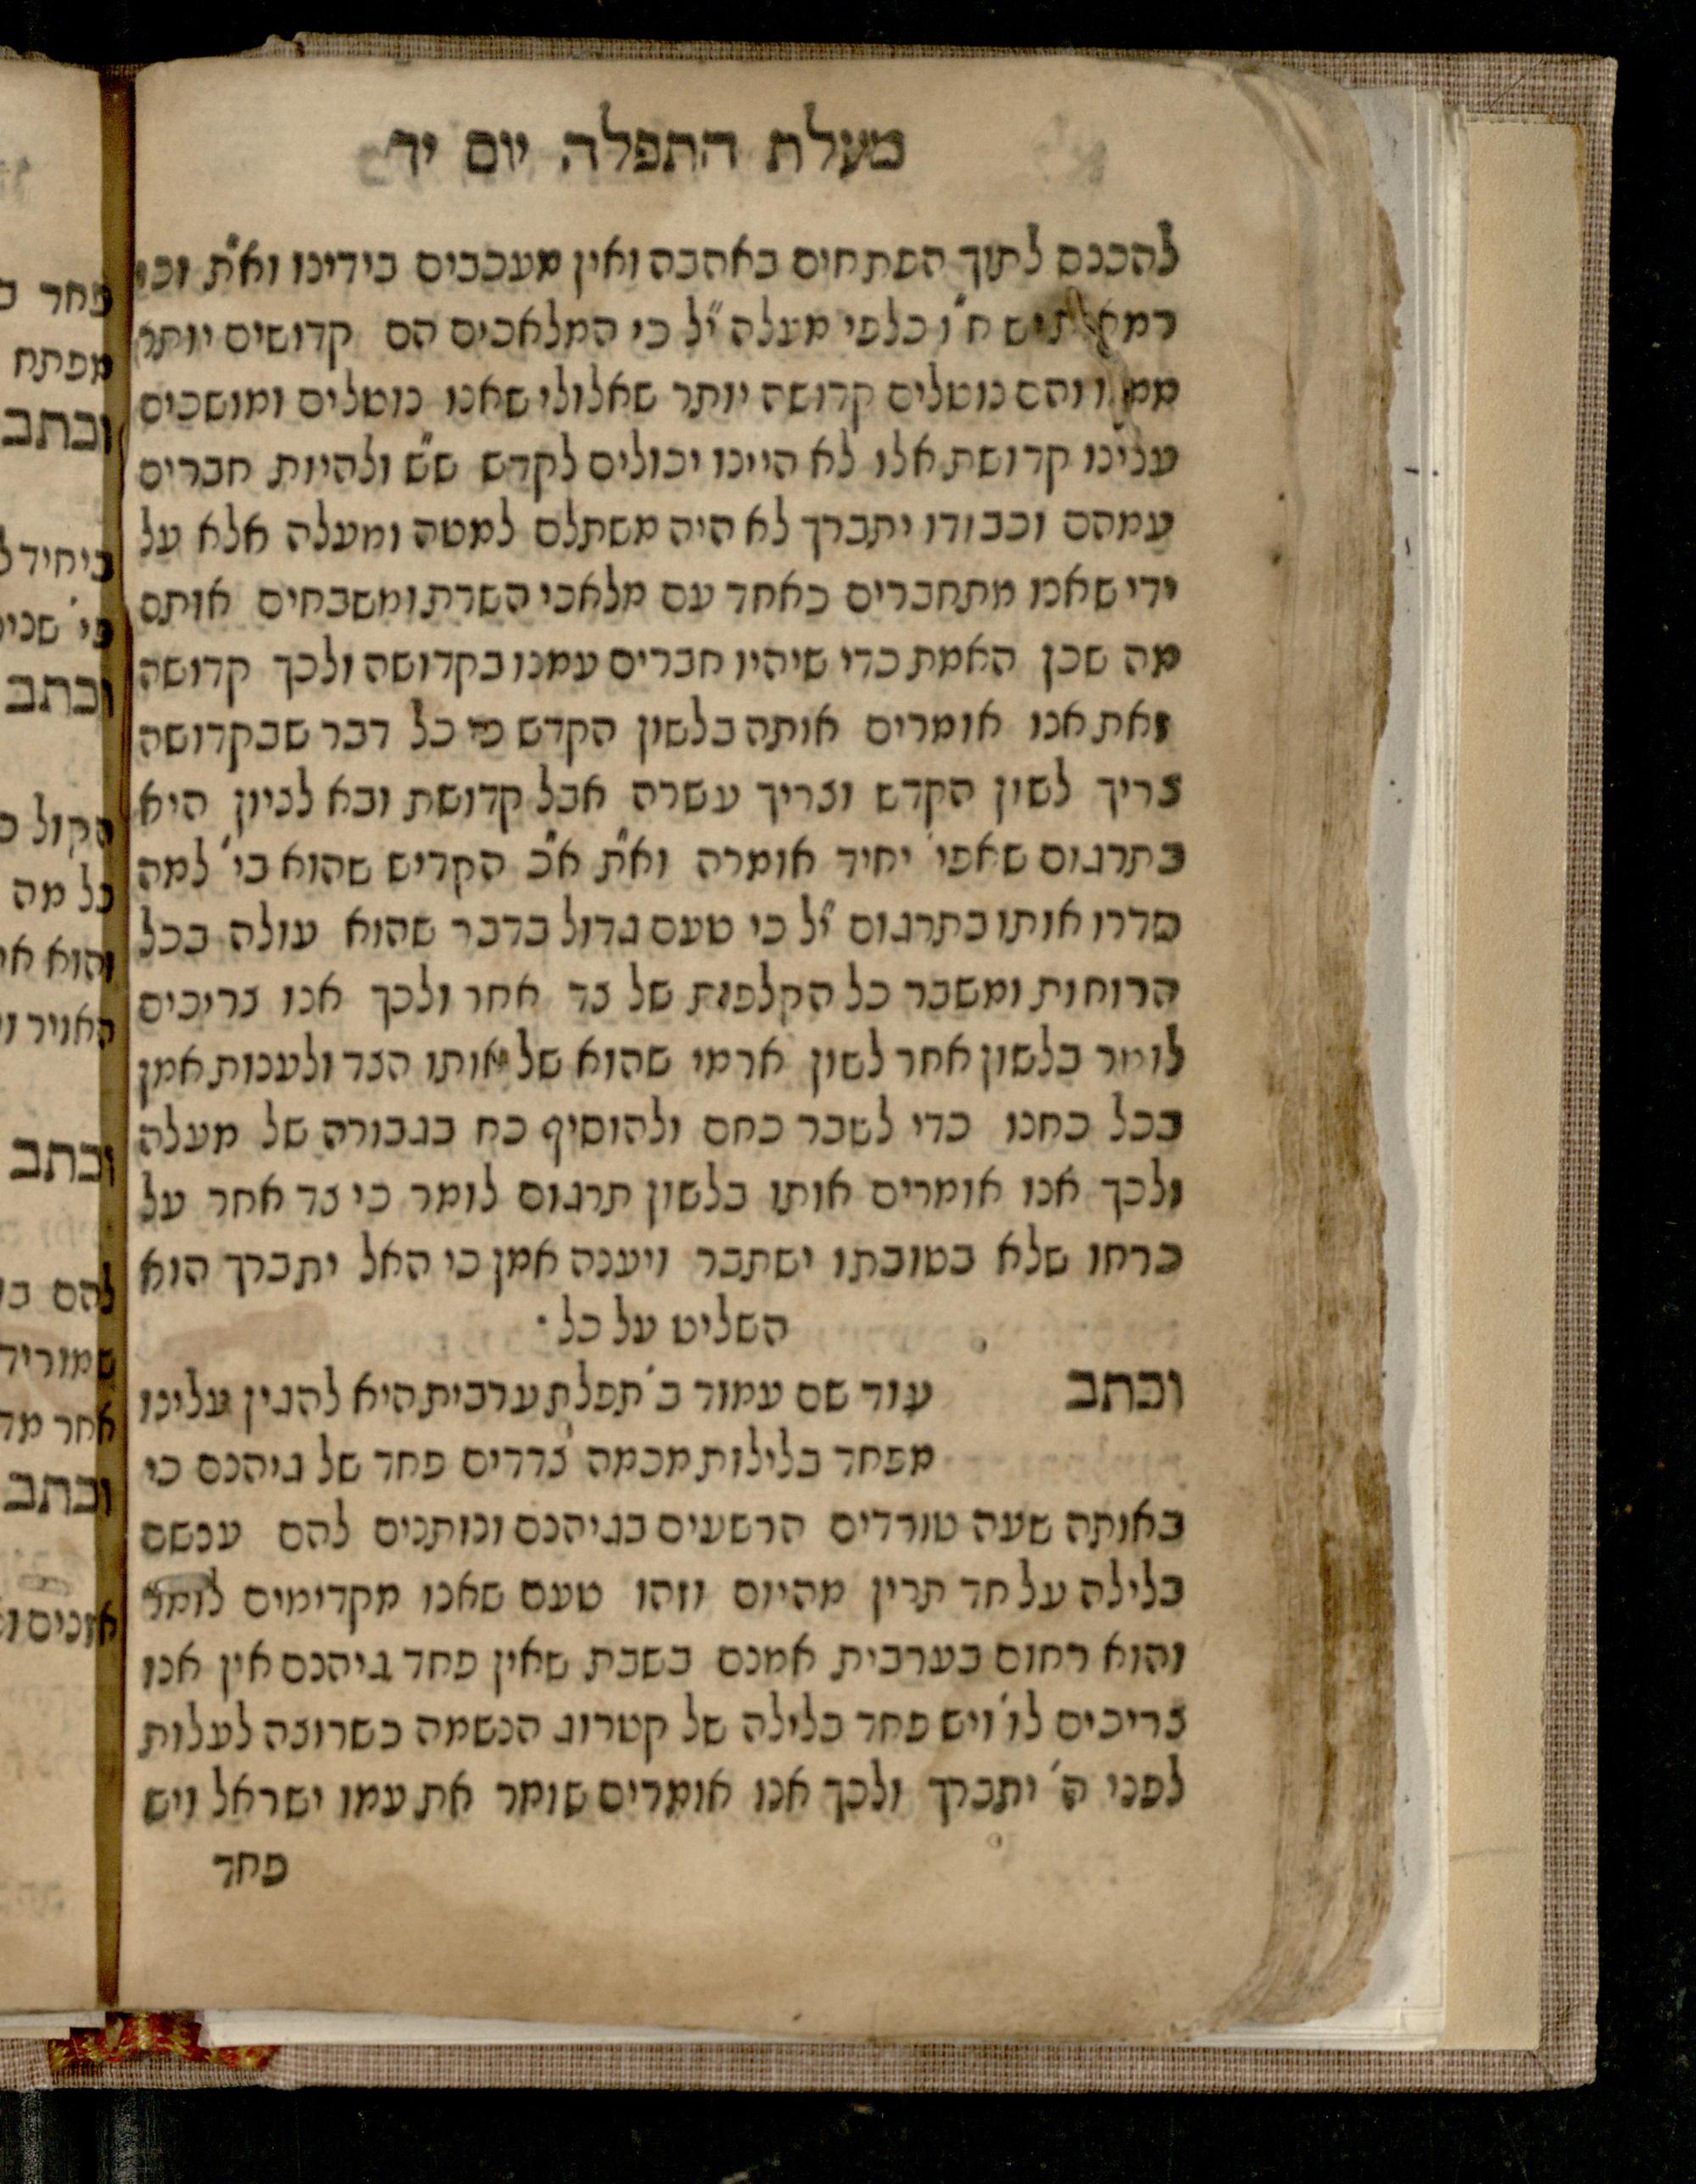 מעלת התפלה יום יד
להכנס לתוך הפתחים באהבה ואין מעכבים בידינו וא"ת וכי
יש ח"ו כלפי מעלה י"ל כי המלאכים הם קדושים יותר
והם נוטלים קדושה יותר שאלולי שאנו נוטלים ומושכים
עלינו קדושת אלו לא היינו יכולים לקדש ש"ש ולהיות חברים
עמהם וכבודו יתברך לא היה משתלם למטה ומעלה אלא על
ידי שאנו מתחברים כאחד עם מלאכי השרת ומשבחים אותם
מה שכן האמת כדי שיהיו חברים עמנו בקדושה ולכך קדושה
זאת אנו אומרים אותה בלשון הקדש כי כל דבר שבקדושה
צריך לשון הקדש וצריך עשרה אבל קדושת ובא לציון היא
בתרגום שאפי' יחיד אומרה וא"ת א"כ הקדיש שהוא בי' למה
סדרו אותו בתרגום י"ל כי טעם גדול בדבר שהוא עולה בכל
הרוחות ומשבר כל הקלפות של צד אחר ולכך אנו צריכים
לומר בלשון אחר לשון ארמי שהוא של אותו הצד ולענות אמן
בכל כחנו כדי לשבר כחם ולהוסיף כח בגבורה של מעלה
ולכך אנו אומרים אותו בלשון תרגום לומר כי צד אחר על
כרחו שלא בטובתו ישתבר ויענה אמן כי האל יתברך הוא
השליט על כל·
וכתב עוד שם עמוד ב' תפלת ערבית היא להגין עלינו
מפחד בלילות מכמה צדדים פחד של גיהנם כי
באותה שעה טורדים הרשעים בגיהנם ונותנים להם עכשם
בלילה על חד תרין מהיום וזהו טעם שאנו מקדימים לומר
והוא רחום בערבית אמנם בשבת שאין פחד גיהנם אין אנו
צריכים לו' ויש פחד בלילה של קטרוג הנשמה כשרוצה לעלות
לפני ה' יתברך ולכך אנו אומרים שומר את עמו ישראל ויש
פחד
פחד
מפתח
וכתב
ביחיד
פי'
וכתב
הקול
כל מה
והוא
וכתב
להם
אחר
וכתב